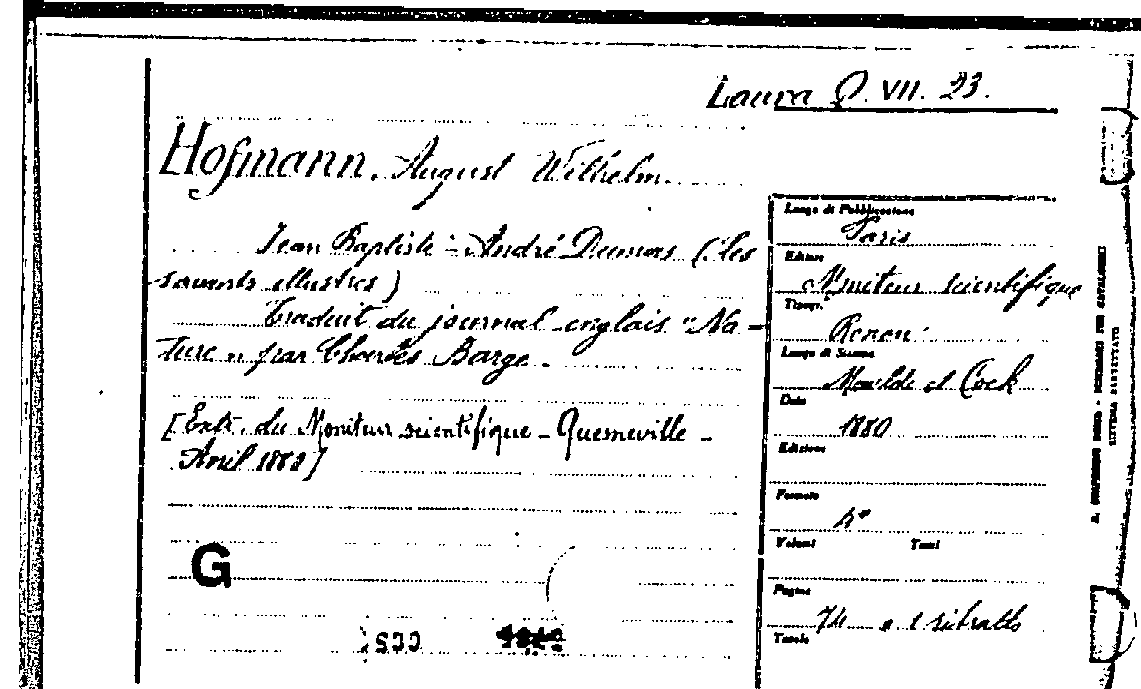 Laura Q. VII. 23.
Hofmann, August Wilhelm.
Jean Baptiste-André Dumas (Les
savants illustres)
Traduit du journal anglais "Na-
ture" par Charles Barge.
[Extr. du Moniteur scientifique - Quesneville -
Avril 1880]
G
Luogo di Pubblicazione
Paris
Editore
Moniteur scientifique
Tipogr.
Renou
Luogo di Stampa
Maulde et Cock
Data
1880
Edizione
Formato
4°
Volumi Tomi
Pagine
74 e 1 ritratto
Tavole
SCHEDARI PER CATALOGHI
SISTEMA BREVETTATO